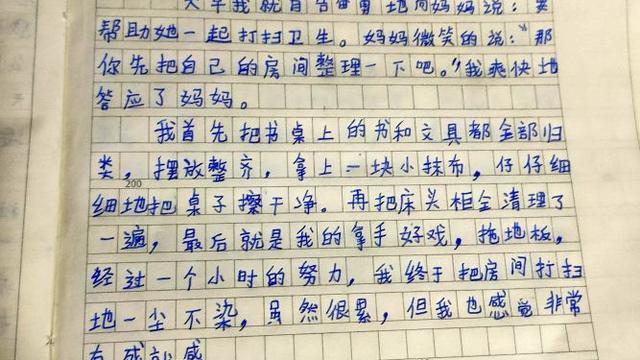 大早我就自告奋勇地向妈妈说：要
帮助她一起打扫卫生。妈妈微笑的说：“那
你先把自己的房间整理一下吧。”我爽快地
答应了妈妈。
我首先把书桌上的书和文具都全部归
类，摆放整齐，拿上一块小抹布，仔仔细
200
细地把桌子擦干净。再把床头柜全清理了
一遍，最后就是我的拿手好戏，拖地板，
经过一个小时的努力，我终于把房间打扫
地一尘不染，虽然很累，但我也感觉非常
有成就感